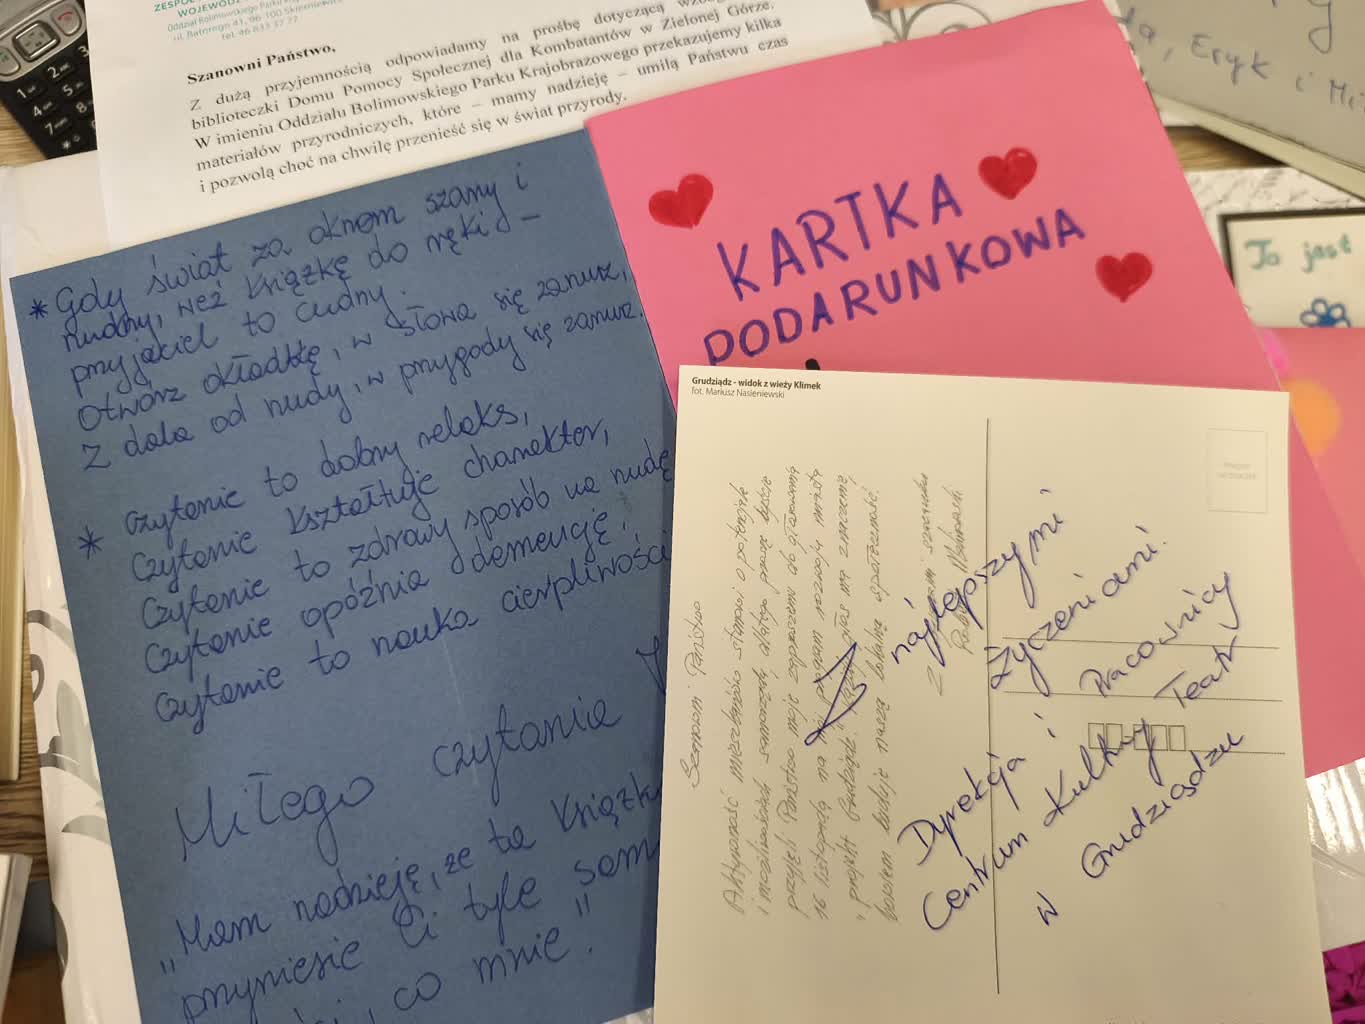 WOJEWÓDZ
Oddział Bolimowskiego Parku
ul. Batorego 41, 96 100 Skierniewice
tel. 46 833 37 77
Szanowni Państwo,
Z dużą przyjemnością odpowiadamy na prośbę dotyczącą
biblioteczki Domu Pomocy Społecznej dla Kombatantów w Zielonej Górze.
W imieniu Oddziału Bolimowskiego Parku Krajobrazowego przekazujemy kilka
materiałów przyrodniczych, które – mamy nadzieję – umilą Państwu czas
i pozwolą choć na chwilę przenieść się w świat przyrody.
Eryk i
To jest
KARTKA
PODARUNKOWA
* Gdy świat za oknem szary i
nudny, weź książkę do ręki –
przyjaciel to cudny.
Otwórz okładkę, w słowa się zanurz,
z dala od nudy, w przygody się zanurz.
* Czytanie to dobry relaks,
Czytanie kształtuje charakter,
Czytanie to zdrawy sposób na nudę
Czytanie opóźnia demencję,
Czytanie to nauka cierpliwości
Miłego czytania
"Mam nadzieję, że ta książk
przyniesie Ci tyle sam
, co mnie."
Grudziądz - widok z wieży Klimek
fot. Mariusz Nasieniewski
Szanowni Państwo
Aktywność mieszkańców stanowi o potencjale
i możliwościach samorządu dlatego proszę
przyjęli Państwo moje zaproszenie do głosowania
16 listopada na program rozwoju miasta
"projekt Grudziądz." głos ma znaczenie
bowiem buduje naszą lokalną społeczność.
Z szacunku
Z najlepszymi
życzeniami.
Dyrekcja i Pracownicy
Centrum Kultury Teatr
w Grudziądzu